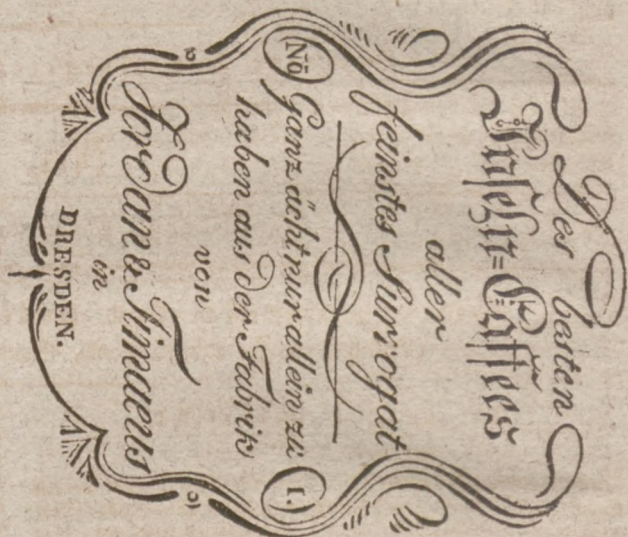 Des besten
Inseln=Caffées
aller
feinstes Surrogat
No 1.
Ganz ächt nur allein zu
haben aus der Fabrik
von
Jordan & Timaeus
in
DRESDEN.